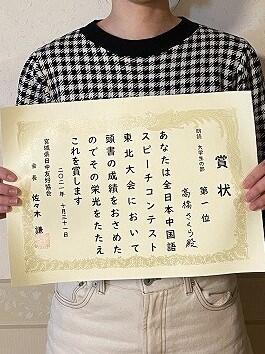 賞状
朗読 大学生の部
第一位
高橋さくら殿
あなたは全日本中国語
スピーチコンテスト
東北大会において
頭書の成績をおさめた
のでその栄光をたたえ
これを賞します
二〇二一年 十月三十一日
宮城県日中友好協会
会長 佐々木 謙